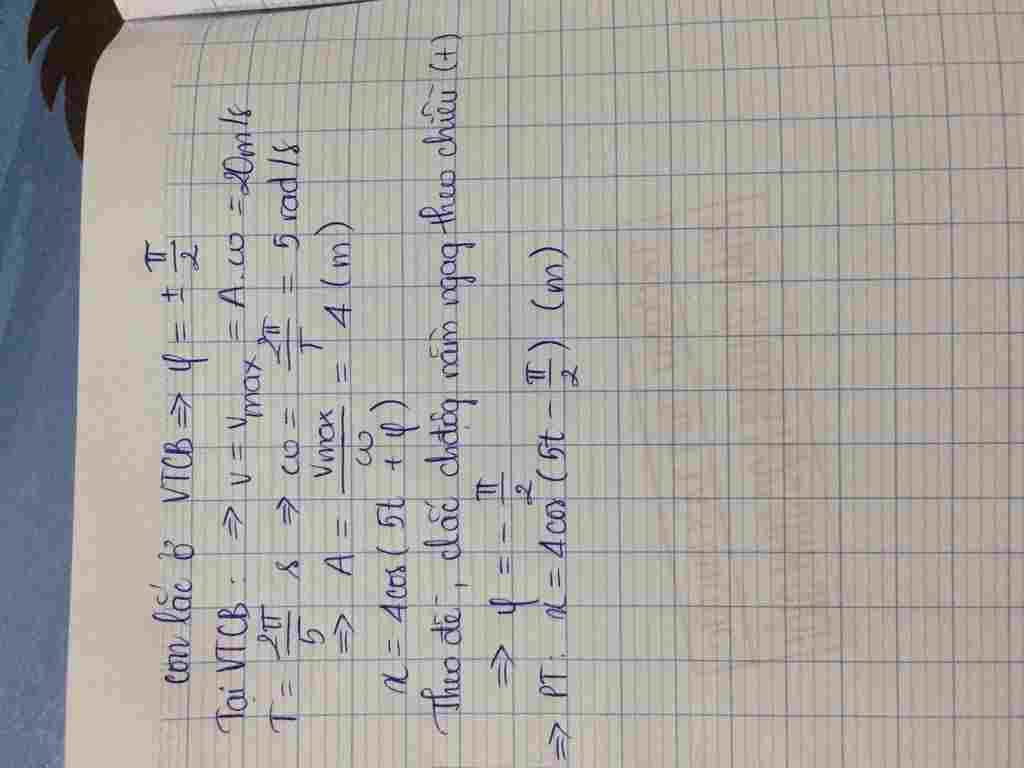 con lắc ở VTCB ⇒ φ = ± π/2
Tại VTCB: ⇒ v = vmax = A.ω = 20m/s
T = 2π/5 s ⇒ ω = 2π/T = 5 rad/s
⇒ A = vmax/ω = 4 (m)
x = 4cos(5t + φ)
Theo đề, clắc chđộg nằm ngag theo chiều (+)
⇒ φ = - π/2
⇒ PT: x = 4cos(5t - π/2) (m)